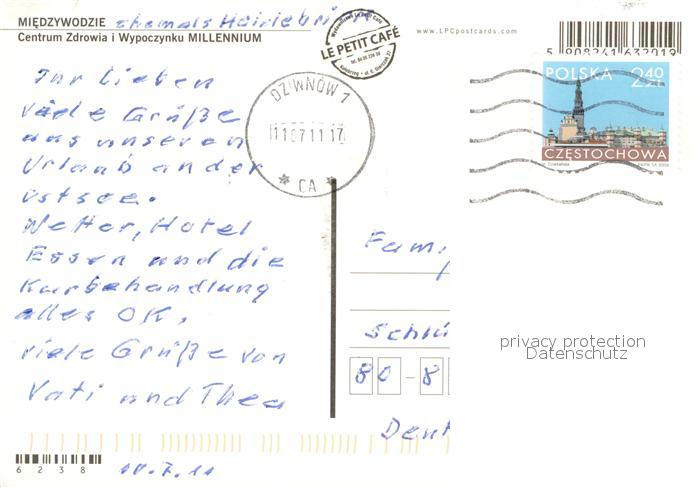 MIĘDZYWODZIE ehemals
Centrum Zdrowia i Wypoczynku MILLENNIUM
LE PETIT CAFÉ
www.LPCpostcards.com
5 908241 632019
POLSKA 2,40 zł
CZĘSTOCHOWA
DZIWNÓW 1
11107 11 17
* CA *
Ihr Lieben
viele Grüße
aus unseren
Urlaub an der
Ostsee.
Wetter, Hotel
Essen und die
Kurbehandlung
alles OK,
viele Grüße von
Vati und Thea
10.7.11
Fami
Schlü
80-8
Deut
privacy protection
Datenschutz
6238